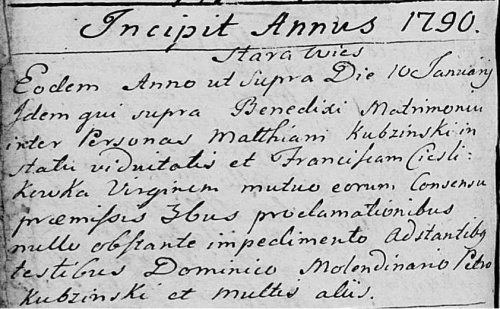 Incipit Annus 1790.
Stara wies
Eodem Anno ut Supra Die 10 Januarij
Idem qui supra Benedixi Matrimoniu
inter Personas Matthiam Kubzinski in
statu viduitatis et Franciscam Ciesli:
kowka Virginem mutuo eorum Consensu
præmissis 3bus proclamationibus
nullo obstante impedimento Adstantibq
testibus Dominico Molendinario Petro
Kubzinski et multis aliis.